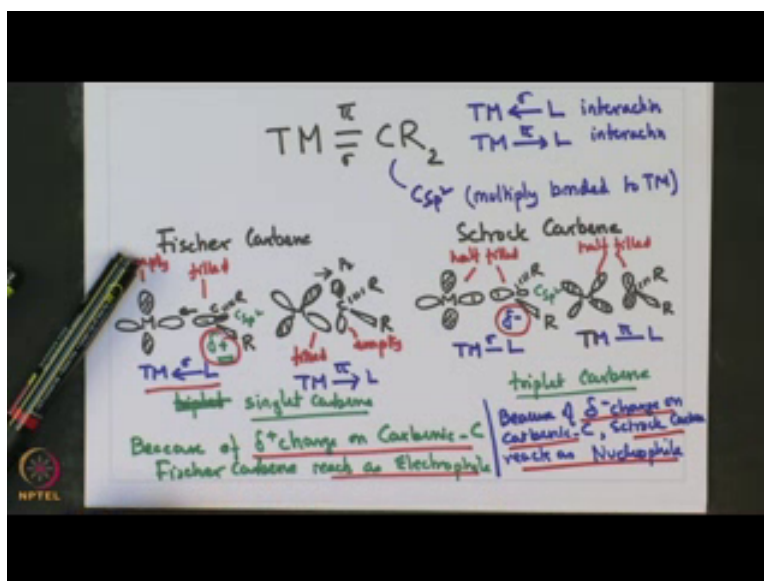 TM π=σ CR2
TM ←σ L interactin
TM π→ L interactin
Csp2 (multiply bonded to TM)
Fischer Carbene
empty filled
M
R
Csp2
R
δ+
TM ←σ L
filled empty
R
R
TM π→ L
triplet singlet carbene
Because of δ+ charge on Carbenic-C
Fischer carbene reach as Electrophile
Schrock Carbene
half filled
M
R
Csp2
R
δ-
TM σ— L
half filled
R
R
TM π— L
triplet Carbene
Because of δ- charge on
Carbenic-C, Schrock Carbene
reach as Nucleophile
NPTEL